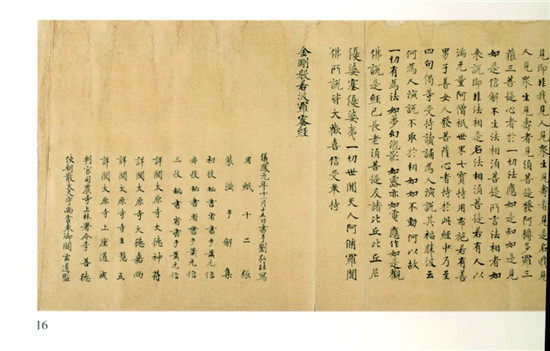 見即非我見人見眾生見壽者見是名我見
人見眾生見壽者見須菩提發阿耨多羅三
藐三菩提心者於一切法應如是知如是見
如是信解不生法相須菩提所言法相者如
來說即非法相是名法相須菩提若有人以
滿无量阿僧祇世界七寶持用布施若有善
男子善女人發菩薩心者持於此經中乃至
四句偈等受持讀誦為人演說其福勝彼云
何為人演說不取於相如如不動何以故
一切有為法如夢幻泡影如露亦如電應作如是觀
佛說是經已長老須菩提及諸比丘比丘尼
優婆塞優婆夷一切世閒天人阿脩羅聞
佛所說皆大歡喜信受奉持
金剛般若波羅蜜經
儀鳳元年十一月十五日書手劉弘珪寫
用紙十二張
裝潢手解集
初校秘書省書手蕭元信
再校秘書省書手蕭元信
三校秘書省書手蕭元信
詳閱太原寺大德神符
詳閱太原寺大德嘉尚
詳閱太原寺寺主慧立
詳閱太原寺上座道成
判官司農寺上林署令李善德
使朝散大夫守尚舍奉御閻玄道監
16